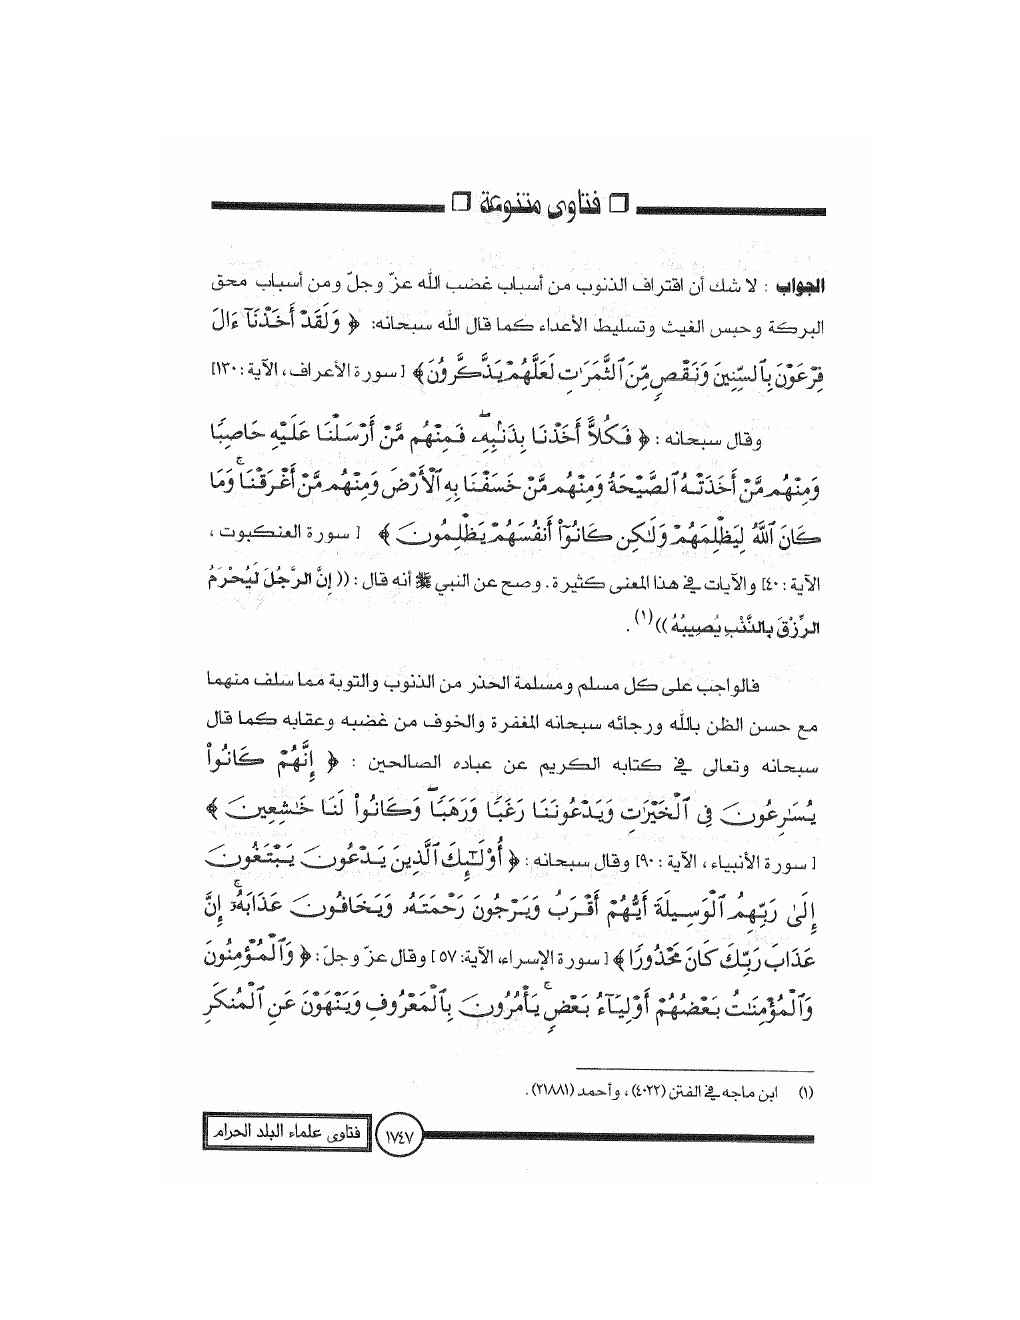 ❒ فتاوى متنوعة ❒
الجواب : لا شك أن اقتراف الذنوب من أسباب غضب الله عزّ وجلّ ومن أسباب محق
البركة وحبس الغيث وتسليط الأعداء كما قال الله سبحانه: ﴿ وَلَقَدْ أَخَذْنَآ ءَالَ
فِرْعَوْنَ بِٱلسِّنِينَ وَنَقْصٍ مِّنَ ٱلثَّمَرَٰتِ لَعَلَّهُمْ يَذَّكَّرُونَ﴾ [سورة الأعراف، الآية: ١٣٠]
وقال سبحانه : ﴿ فَكُلاًّ أَخَذْنَا بِذَنۢبِهِۦۖ فَمِنْهُم مَّنْ أَرْسَلْنَا عَلَيْهِ حَاصِبًا
وَمِنْهُم مَّنْ أَخَذَتْهُ ٱلصَّيْحَةُ وَمِنْهُم مَّنْ خَسَفْنَا بِهِ ٱلْأَرْضَ وَمِنْهُم مَّنْ أَغْرَقْنَاۚ وَمَا
كَانَ ٱللَّهُ لِيَظْلِمَهُمْ وَلَٰكِن كَانُوٓا۟ أَنفُسَهُمْ يَظْلِمُونَ ﴾ [ سورة العنكبوت ،
الآية : ٤٠] والآيات في هذا المعنى كثيرة. وصح عن النبي ﷺ أنه قال : (( إنَّ الرَّجُلَ لَيُحْرَمُ
الرِّزْقَ بِالذَّنْبِ يُصِيبُهُ ))(١) .
فالواجب على كل مسلم ومسلمة الحذر من الذنوب والتوبة مما سلف منهما
مع حسن الظن بالله ورجائه سبحانه المغفرة والخوف من غضبه وعقابه كما قال
سبحانه وتعالى في كتابه الكريم عن عباده الصالحين : ﴿ إِنَّهُمْ كَانُوا۟
يُسَٰرِعُونَ فِى ٱلْخَيْرَٰتِ وَيَدْعُونَنَا رَغَبًا وَرَهَبًاۖ وَكَانُوا۟ لَنَا خَٰشِعِينَ ﴾
[ سورة الأنبياء ، الآية : ٩٠] وقال سبحانه : ﴿ أُو۟لَٰٓئِكَ ٱلَّذِينَ يَدْعُونَ يَبْتَغُونَ
إِلَىٰ رَبِّهِمُ ٱلْوَسِيلَةَ أَيُّهُمْ أَقْرَبُ وَيَرْجُونَ رَحْمَتَهُۥ وَيَخَافُونَ عَذَابَهُۥٓۚ إِنَّ
عَذَابَ رَبِّكَ كَانَ مَحْذُورًا ﴾ [ سورة الإسراء، الآية: ٥٧ ] وقال عزّ وجلّ : ﴿ وَٱلْمُؤْمِنُونَ
وَٱلْمُؤْمِنَٰتُ بَعْضُهُمْ أَوْلِيَآءُ بَعْضٍۚ يَأْمُرُونَ بِٱلْمَعْرُوفِ وَيَنْهَوْنَ عَنِ ٱلْمُنكَرِ
(١) ابن ماجه في الفتن (٤٠٢٢) ، وأحمد (٢١٨٨١) .
١٧٤٧
فتاوى علماء البلد الحرام